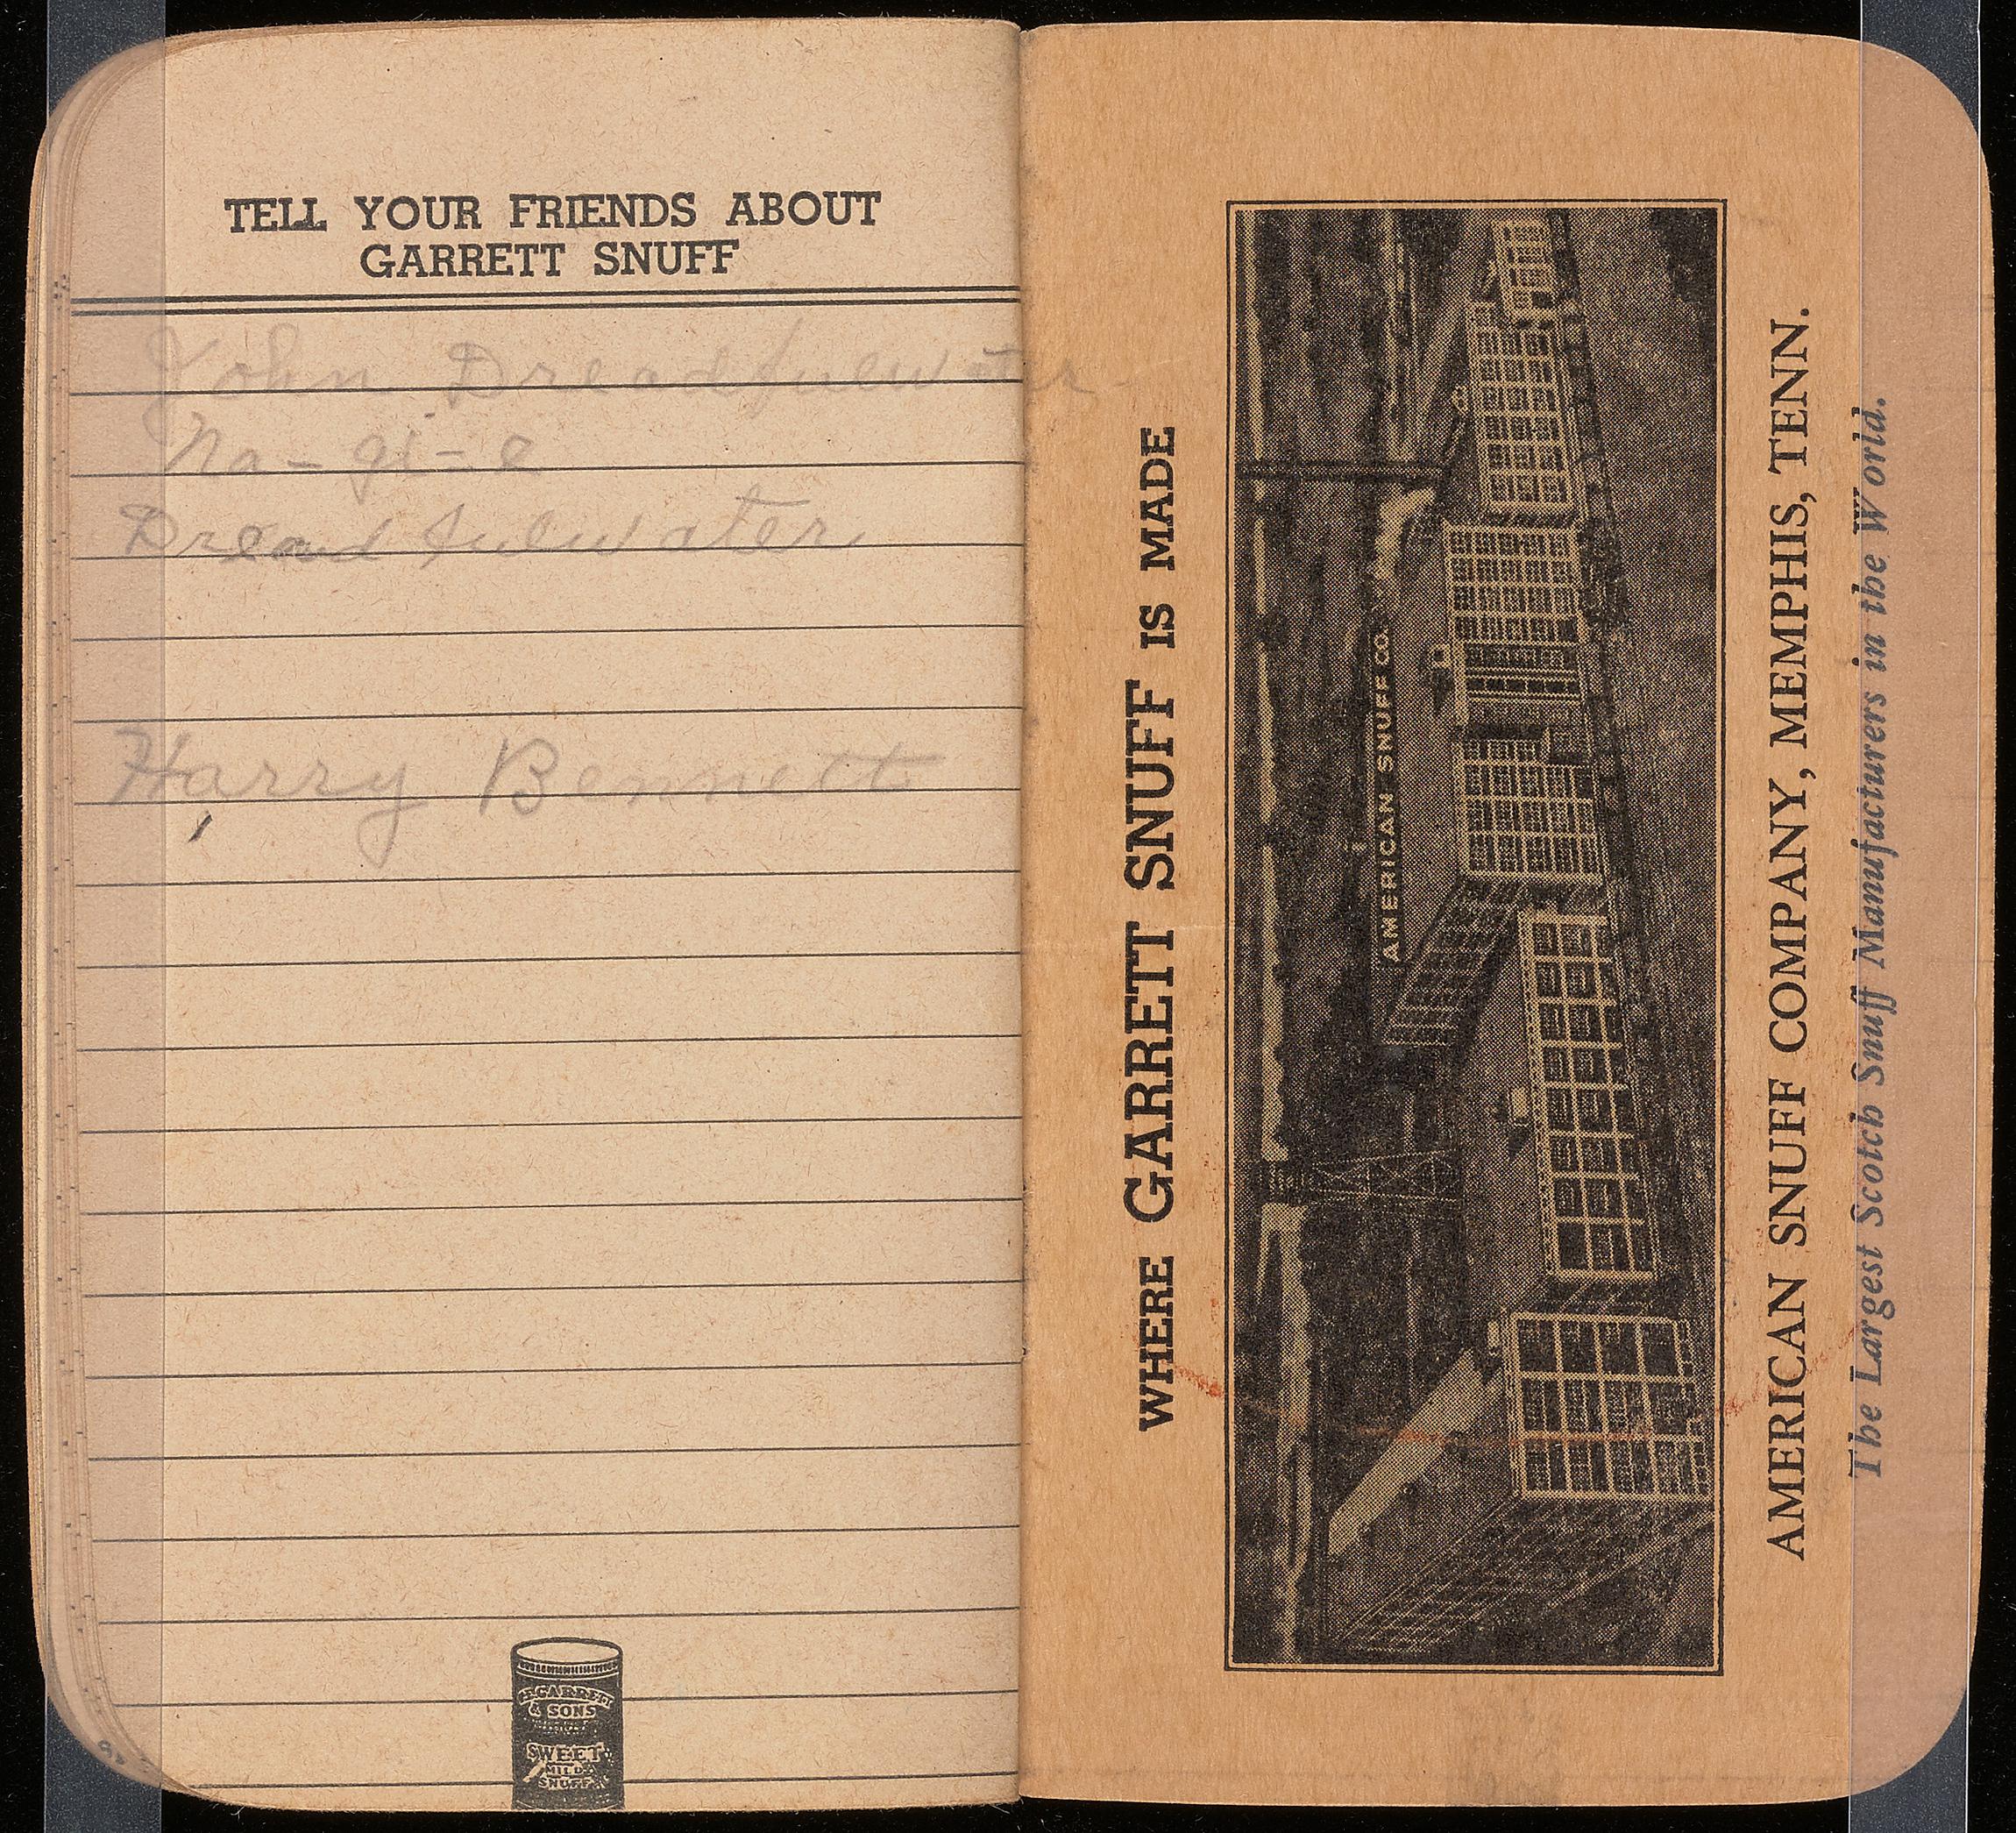 TELL YOUR FRIENDS ABOUT
GARRETT SNUFF
John Dreadfulewater
Na-gi-e
Dreadfulewater
Harry Bennett
GARRETT
& SONS
SWEET
MILD
SNUFF
WHERE GARRETT SNUFF IS MADE
AMERICAN SNUFF CO.
AMERICAN SNUFF COMPANY, MEMPHIS, TENN.
The Largest Scotch Snuff Manufacturers in the World.